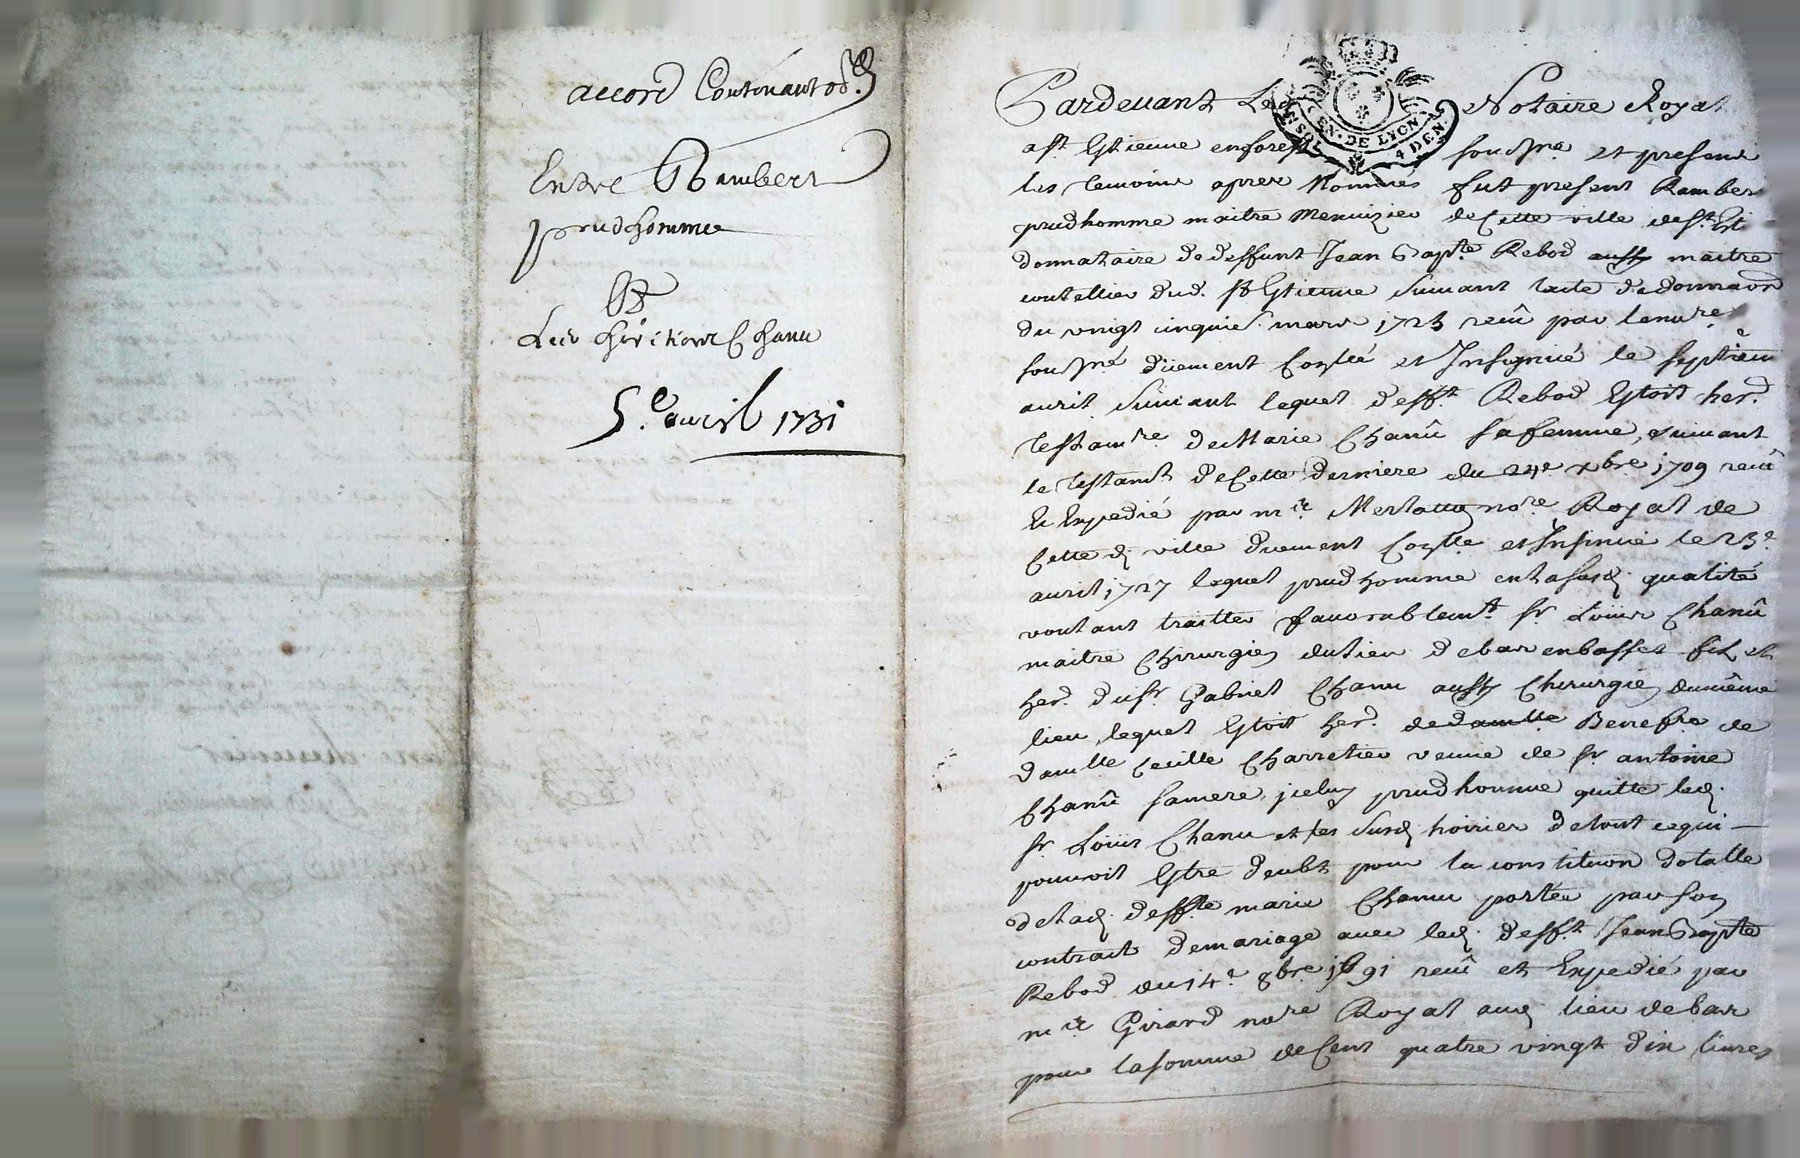 accord Contenant
Entre Rambert
prudhomme
Et
Les héritiers Chanu
5.e avril 1731
GEN. DE LYON
4 DEN.
Pardevant Le Notaire Royal
a St Estienne enforest sousné et presents
les temoins apres Nommés fut present Ramber
prudhomme maitre Menuizier de Cette ville de St Et
donnataire de deffunt Jean Bapte Rebod aussy maitre
coutellier dud. St Estienne Suivant lacte de donnaon
du vingt cinquie mars 1723 receû par lenore
sousné düement Conllé et Insignué le septieme
avril Suivant lequel deft Rebod Estoit her.
testamre de Marie Chanû sa femme, suivant
le testamt de Cette derniere du 24e xbre 1709 receû
Et Expedié par mre nore Royal de
Cette d ville duement Conlle et Insinué le 23e
avril 1727 lequel prudhomme en sa susd. qualité
voulant traitter favorablemt. Sr Loüis Chanû
maitre Chirurgien dulieu de bas enbasset fils et
her. du Sr. Gabriel Chanu aussy Chirurgien dumême
lieu, lequel Estoit her. de damlle Benefre de
damlle Cecille Charretier veuve de Sr antoine
Chanû samere, jceluy prudhomme quitte led.
Sr. Loüis Chanu et les Susd. hoiries detout cequi
pouvoit Estre deubt pour la constituon dotalle
delad. deffte marie Chanu portée par son
contrait demariage avec led. defft. Jean Bapte
Rebod du 14e 8bre 1691 receû et Expedié par
mre Girard nore Royal aud. lieu debas
pour lasomme deCent quatre vingt dix livres